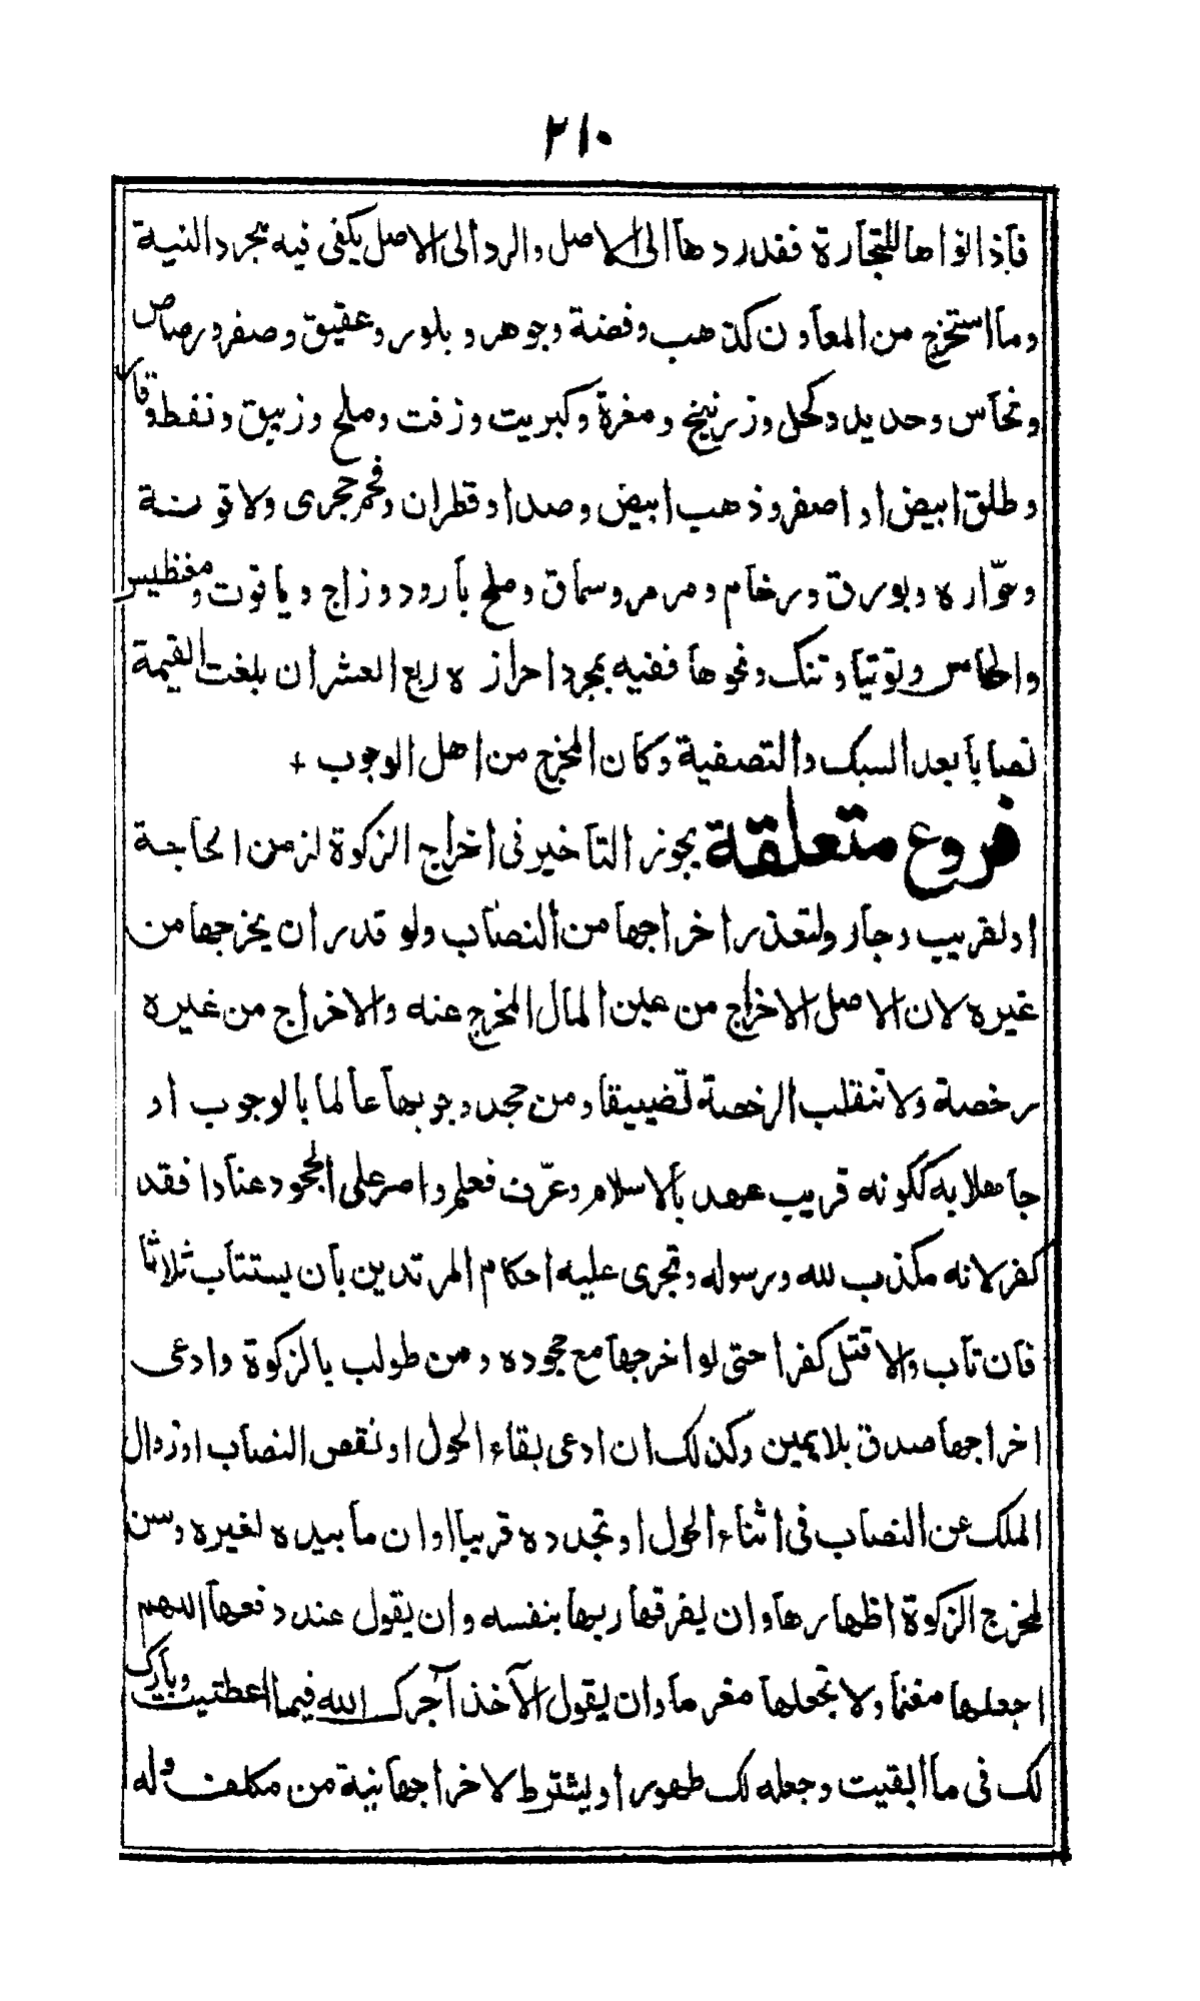 ٢١٠
فاذا نواها للتجارة فقد ردها الى الاصل والرد الى الاصل يكفى فيه مجرد النية
وما استخرج من المعادن كذهب وفضة وجوهر وبلور وعقيق وصفر ورصاص
ونحاس وحديد وكحل وزرنيخ ومغرة وكبريت وزفت وملح وزيبق ونفط وقار
وطلق ابيض او اصفر وذهب ابيض وصدا وقطران وفحم حجرى ولاقونة
وحواره وبورق ورخام ومرمر وسماق وملح بارود وزاج وياقوت ومغظيس
والماس وتوتيا وتنك ونحوها ففيه بمجرد احرازه ربع العشر ان بلغت القيمة
نصابا بعد السبك والتصفية وكان المخرج من اهل الوجوب +
فروع متعلقة يجوز التأخير فى اخراج الزكوة لزمن الحاجة
او لقريب وجار ولتعذر اخراجها من النصاب ولو قدر ان يخرجها من
غيره لان الاصل الاخراج من عين المال المخرج عنه والاخراج من غيره
رخصة ولا تنقلب الرخصة تضييقا ومن جحد وجوبها عالما بالوجوب او
جاهلا به ككونه قريب عهد بالاسلام وعرّف فعلم واصر على الجحود عنادا فقد
كفر لانه مكذب لله ورسوله وتجرى عليه احكام المرتدين بان يستتاب ثلاثا
فان تاب والا قتل كفرا حتى لو اخرجها مع جحوده ومن طولب بالزكوة وادعى
اخراجها صدق بلا يمين وكذلك ان ادعى بقاء الحول او نقص النصاب او زوال
الملك عن النصاب فى اثناء الحول او تجدده قريبا او ان ما بيده لغيره وسن
لمخرج الزكوة اظهارها وان يفرقها ربها بنفسه وان يقول عند دفعها اللهم
اجعلها مغنما ولا تجعلها مغرما وان يقول الآخذ آجرك الله فيما اعطتيت وبارك
لك فى ما ابقيت وجعله لك طهورا ويشترط لاخراجها نية من مكلف وله